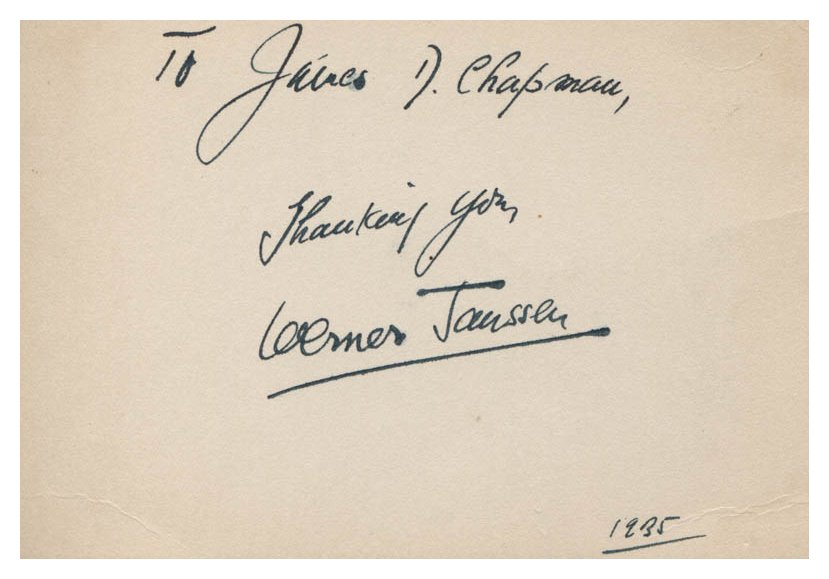 To James D. Chapman,
Thanking you,
Werner Janssen
1935